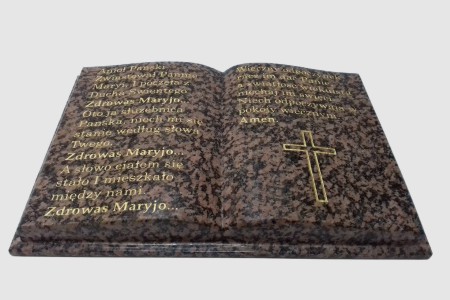 Anioł Pański
Zwiastował Pannie
Maryi I poczęła z
Ducha Świętego
Zdrowas Maryjo...
Oto ja służebnica
Pańska, niech mi się
stanie według słowa
Twego.
Zdrowas Maryjo...
A słowo ciałem się
stało I mieszkało
między nami.
Zdrowas Maryjo...
Wieczny odpoczynek
racz im dać Panie,
a światłość wiekuista
niechaj im
Niech odpoczywają w
pokoju wiecznym
Amen.